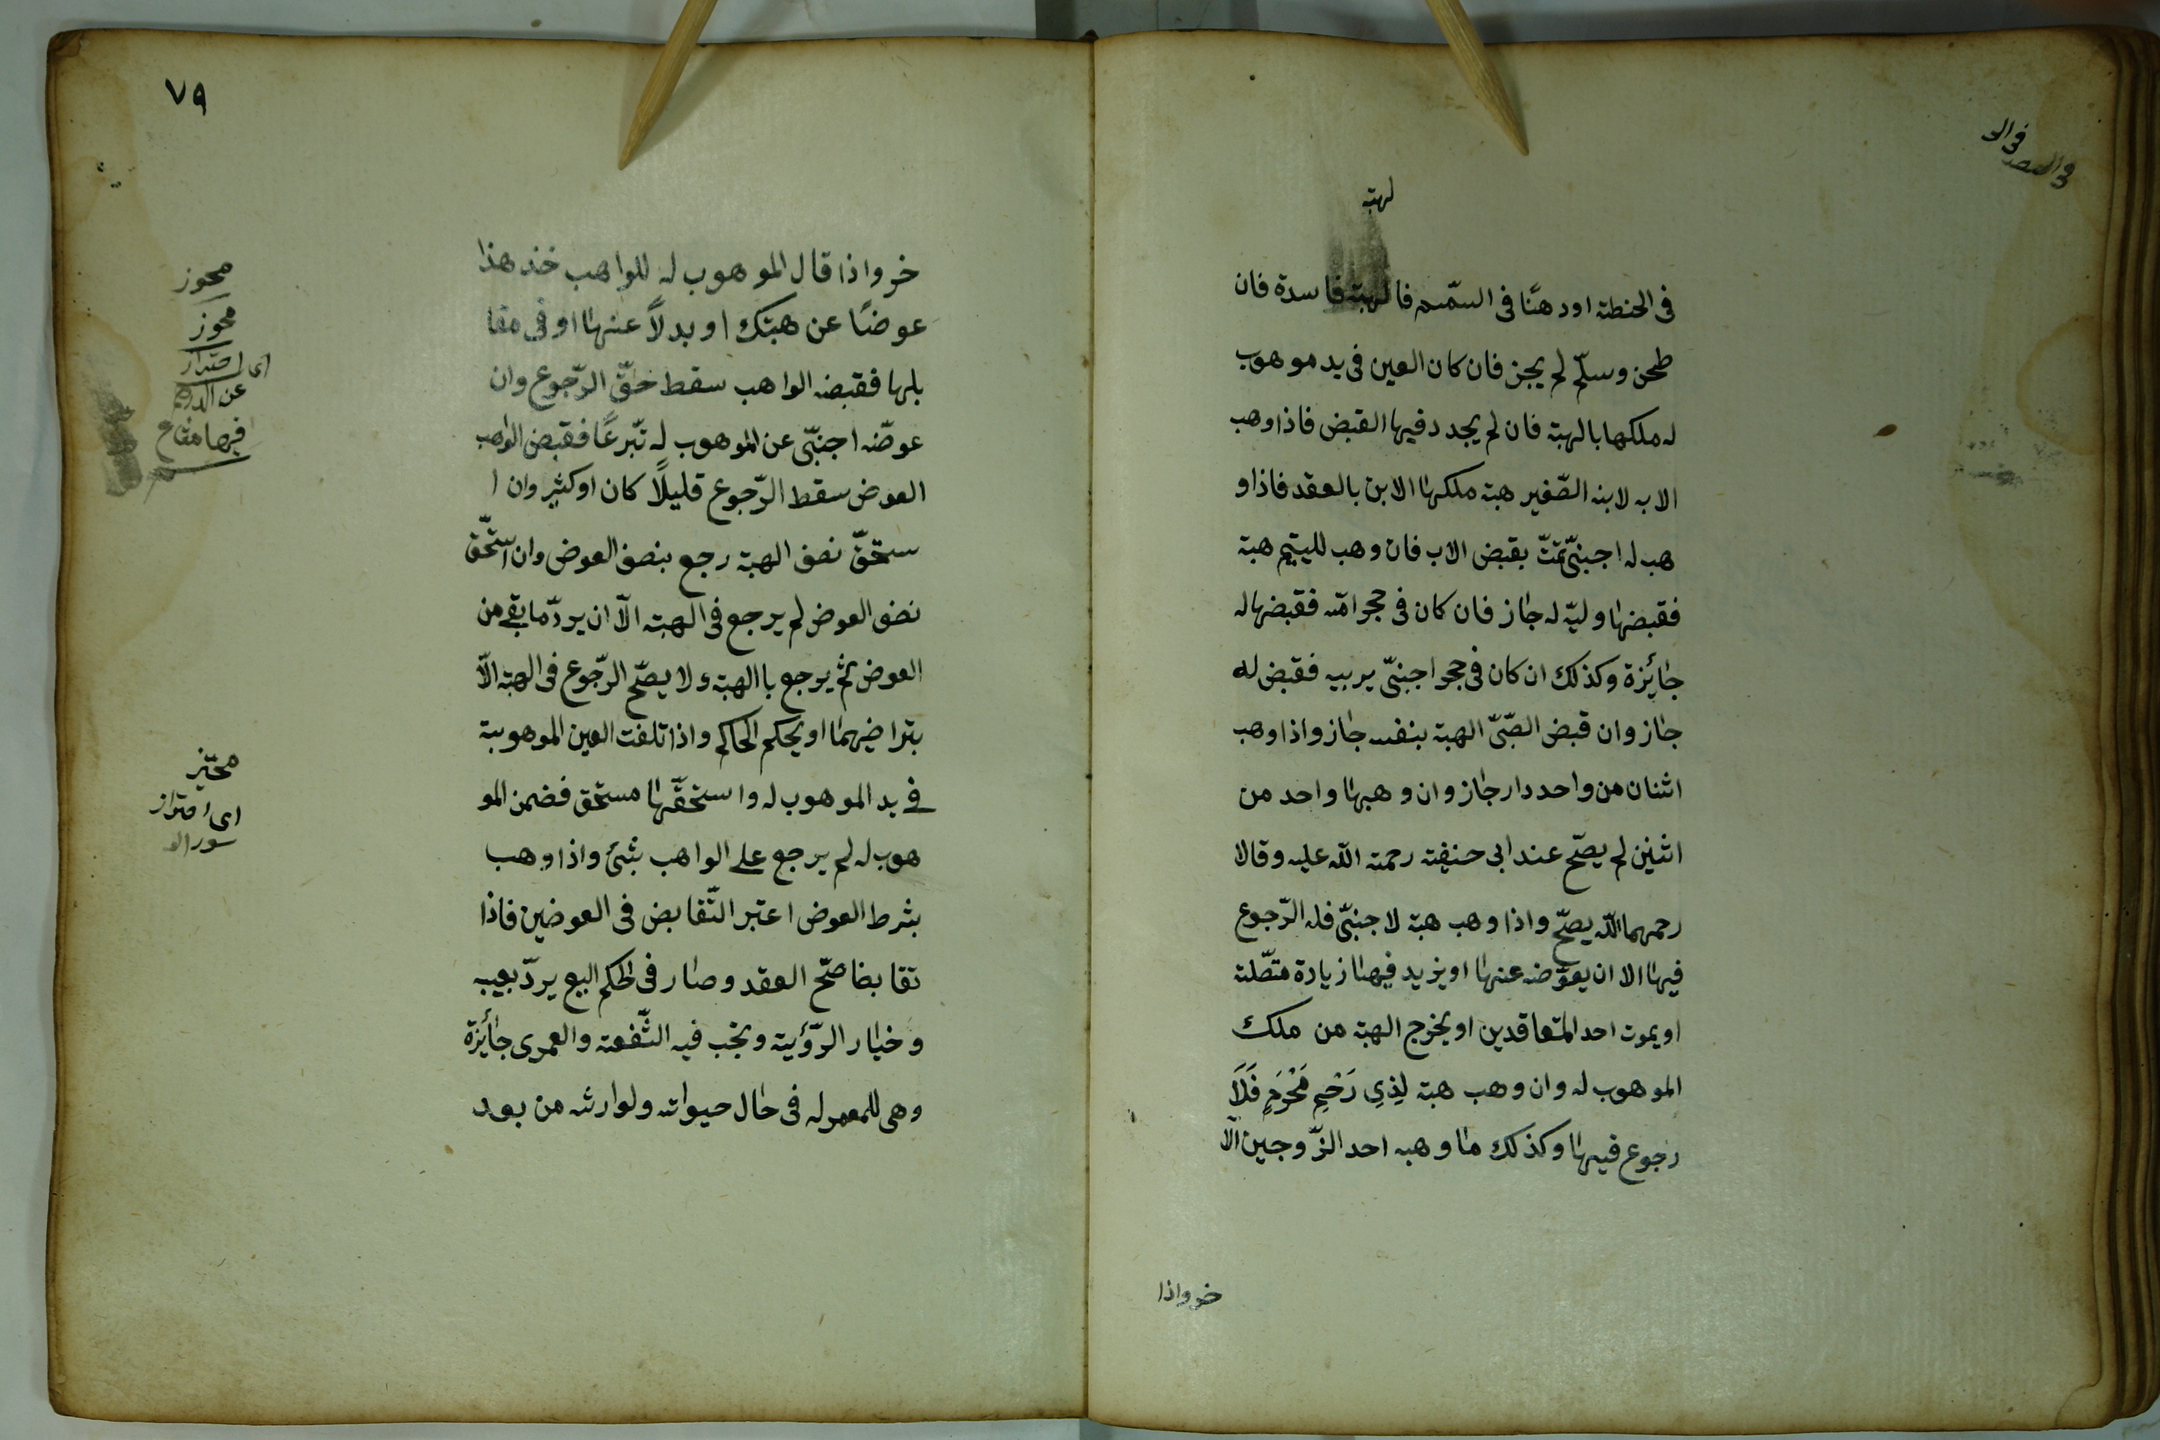 لهبة
فى الحنطة اودهنًا فى السّمسم فا لهبة فا سدة فان
طحن وسلّم لم يجز فان كان العين فى يد موهوب
له ملكها بالهبة فان لم يجدد فيها القبض فاذا وهب
الاب لابنه الصّغير هبة ملكها الابن بالعقد فاذا و
هب له اجنبىّ تمّت بقبض الاب فان وهب لليتيم هبة
فقبضها وليّه له جاز فان كان فى حجر امّه فقبضها له
جائزة وكذلك ان كان فى حجر اجنبىّ يربيه فقبض له
جاز وان قبض الصّبىّ الهبة بنفسه جاز واذا وهب
اثنان من واحد دار جاز وان وهبها واحد من
اثنين لم يصحّ عند ابى حنيفة رحمة اللّه عليه وقالا
رحمهما اللّه يصحّ واذا وهب هبة لاجنبىّ فله الرّجوع
فيها الا ان يعوّضه عنها اويزيد فيها زيادة متّصلة
اويموت احد المتعاقدين اويخرج الهبة من ملك
الموهوب له وان وهب هبة لِذِى رَحْمٍ مَحْرَمٍ فَلَا
رجوع فيها وكذلك ما وهبه احد الزّوجين الّا
خر واذا
٧٩
خر واذا قال الموهوب له للواهب خذ هذا
عوضًا عن هبتك اوبدلاً عنها اوفى مقا
بلها فقبضه الواهب سقط حقّ الرّجوع وان
عوضّه اجنبىّ عن الموهوب له تبّرعًا فقبض الواهب
العوض سقط الرّجوع قليلًا كان اوكثير وان ا
ستحقّ نصف الهبة رجع بنصف العوض وان استحّق
نصف العوض لم يرجع فى الهبة الّا ان يردّ ما بقى من
العوض ثم يرجع باالهبة ولا يصحّ الرّجوع فى الهبة الّا
بتراضيهما اويحكم الحاكم واذا تلفت العين الموهوبة
فى يد الموهوب له واستحقّها مستحق فضمن المو
هوب له لم يرجع على الواهب بشئ واذا وهب
بشرط العوض اعتبر التّقابض فى العوضين فاذا
تقابضا صحّ العقد وصار فى الحكم البيع يردّ بعيب
وخيار الرّؤية ويجب فيه الشّفعة والعمرى جائزة
وهى للمعمر له فى حال حيواته ولوارثه من بعد
محوز
محوز
عن
فيها مشاع
اى احتراز